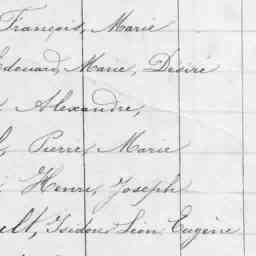 François, Marie
Edouard, Marie, Désiré
Alexandre,
Pierre, Marie
Henri, Joseph
elt, Isidore Léon Eugène